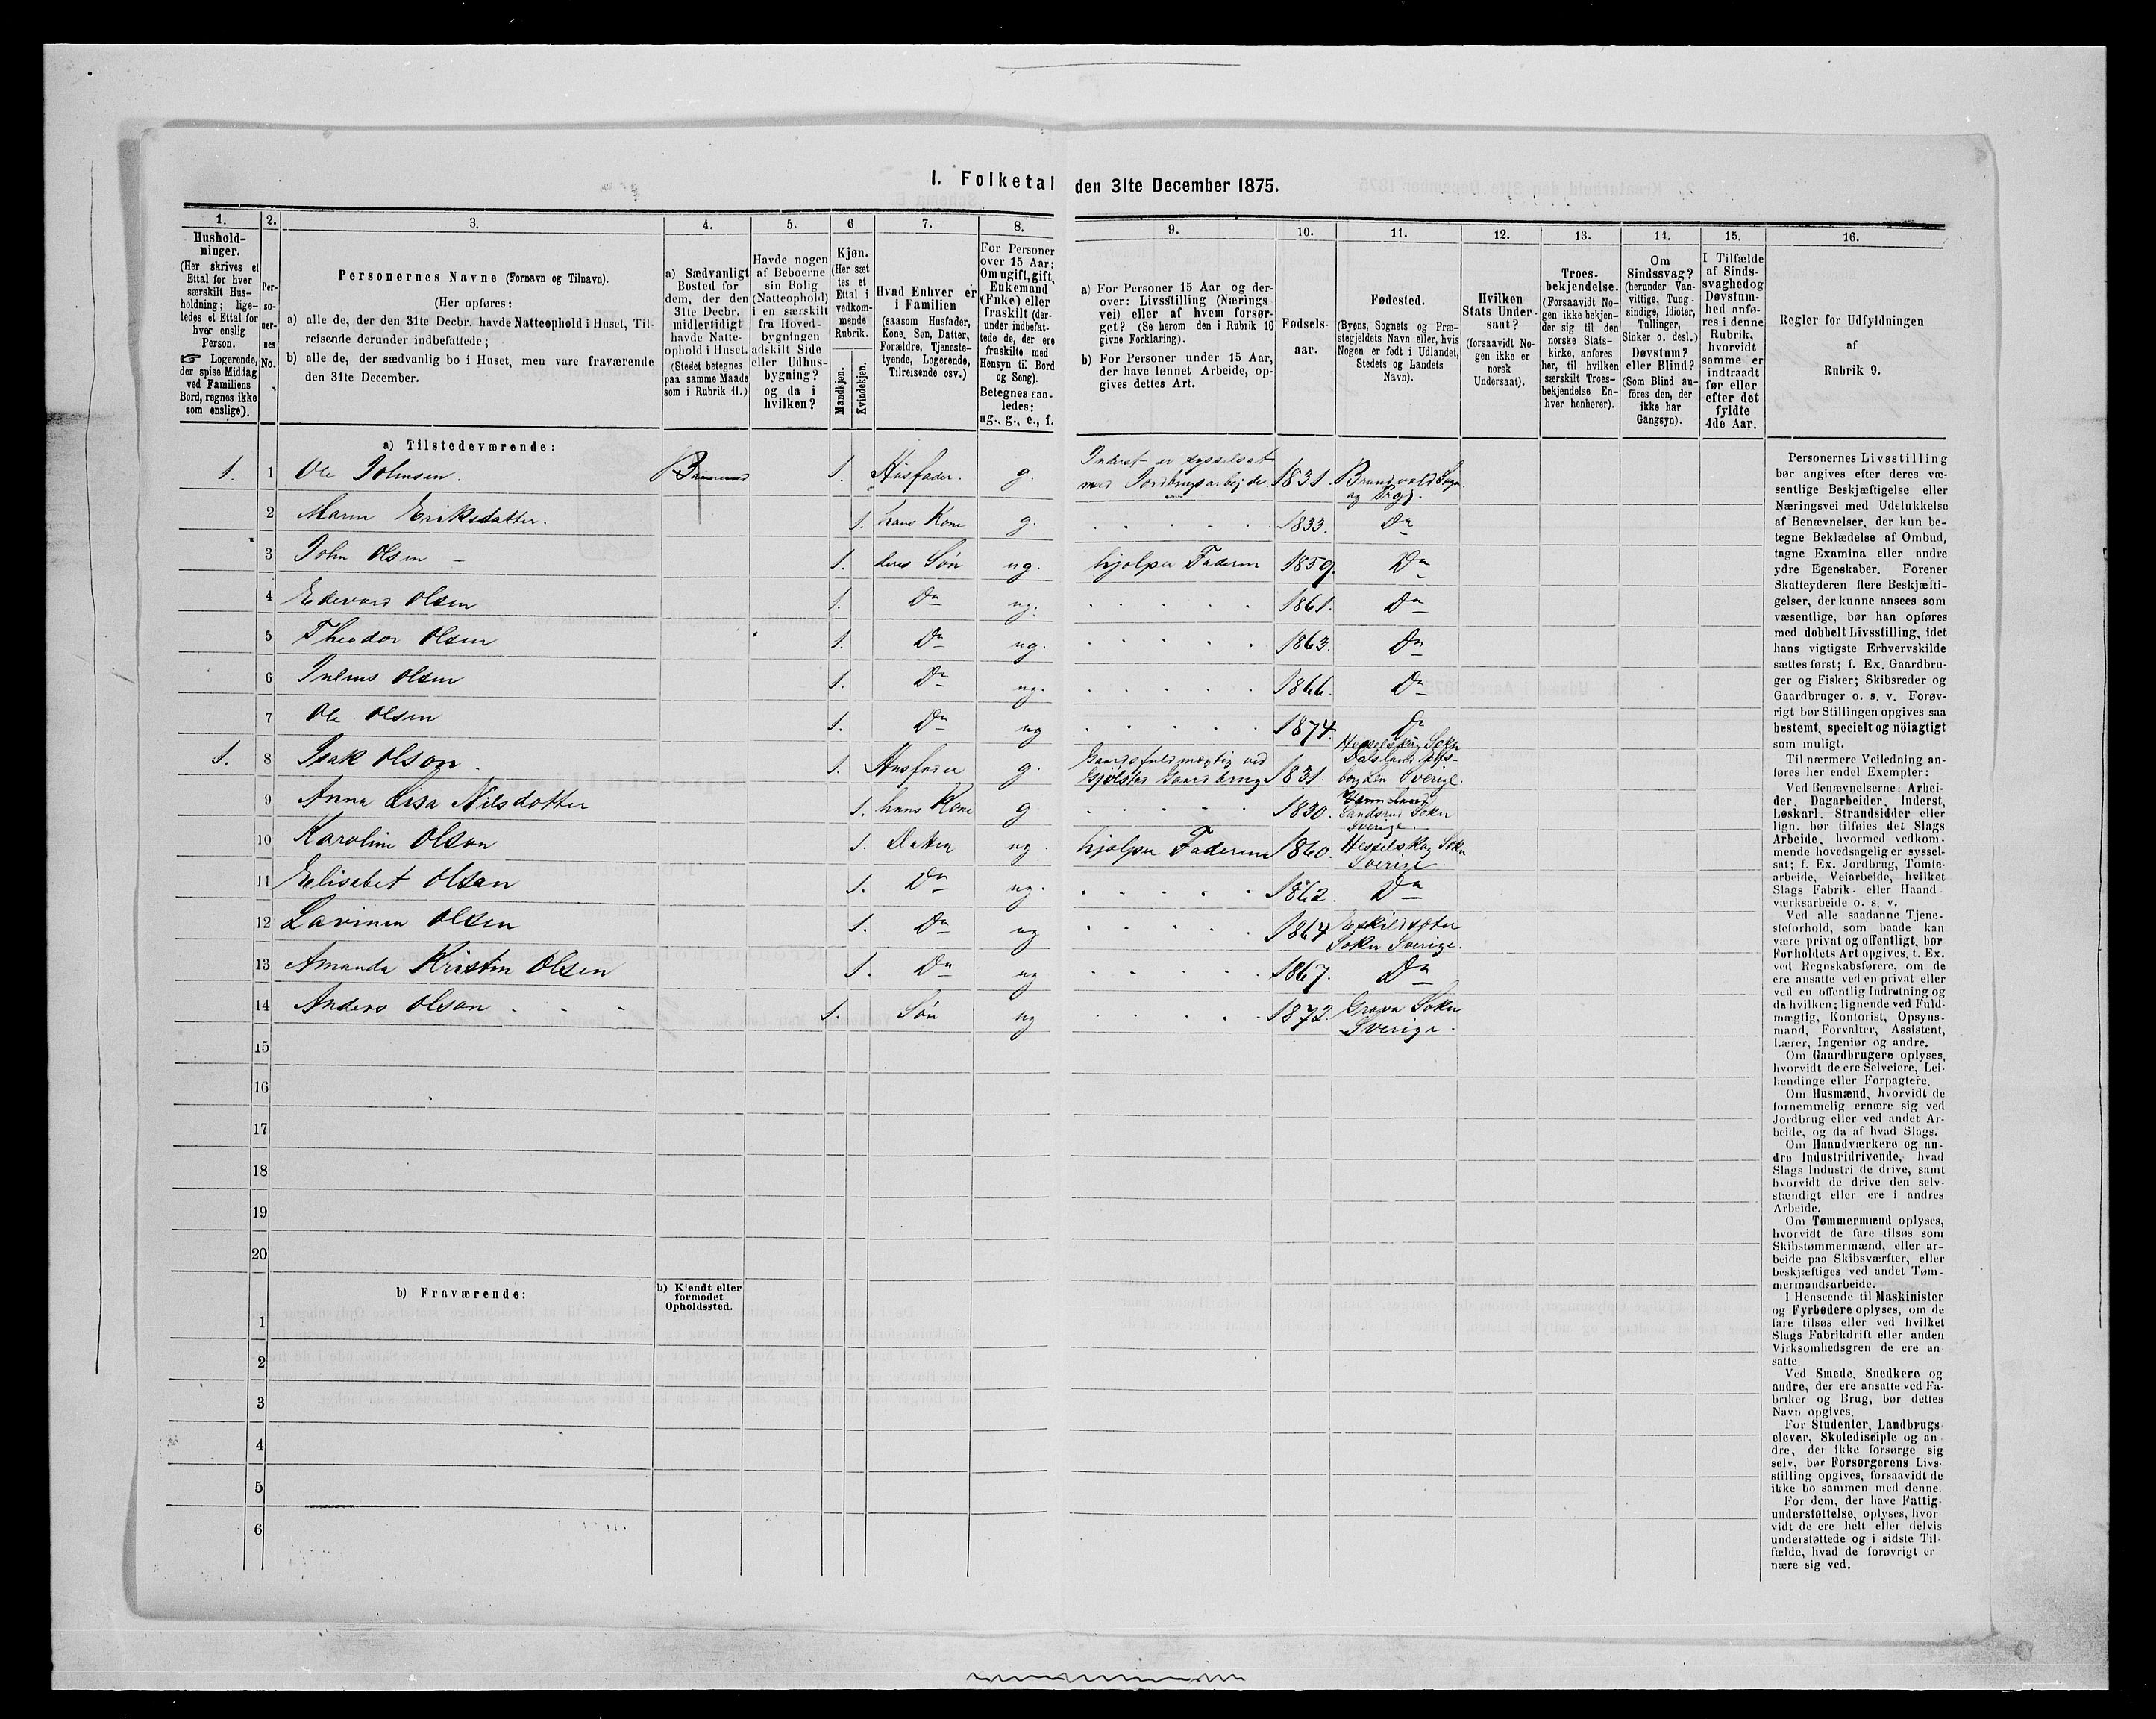 I. Folketal den 31te December 1875.
1.
2.
3.
4.
5.
6.
7.
8.
9.
10.
11.
12.
13.
14.
15.
16.
Hushold-
ninger.
(Her skrives et
Ettal for hver
særskilt Hus-
holdning; lige-
ledes et Ettal for
hver enslig
Person.
☞ Logerende,
der spise Middag
ved Familiens
Bord, regnes ikke
som enslige).
Per-
so-
ner-
nes
No.
Personernes Navne (Fornavn og Tilnavn).
(Her opføres:
a) alle de, der den 31te Decbr. havde Natteophold i Huset, Til-
reisende derunder indbefattede;
b) alle de, der sædvanlig bo i Huset, men vare fraværende
den 31te December.
a) Sædvanligt
Bosted for
dem, der den
31te Decbr.
midlertidigt
havde Natte-
ophold i Huset.
(Stedet betegnes
paa samme Maade
som i Rubrik 11.)
Havde nogen
af Beboerne
sin Bolig
(Natteophold)
i en særskilt
fra Hoved-
bygningen
adskilt Side
eller Udhus-
bygning?
og da i
hvilken?
Kjøn.
(Her sæt-
tes et
Ettal i
vedkom-
mende
Rubrik.
Mandkjøn.
Kvindekjøn.
Hvad Enhver er
i Familien
(saasom Husfader,
Kone, Søn, Datter,
Forældre, Tjeneste-
tyende, Logerende,
Tilreisende osv.)
For Personer
over 15 Aar:
Om ugift, gift,
Enkemand
(Enke) eller
fraskilt (der-
under indbefat-
tede de, der ere
fraskilte med
Hensyn til Bord
og Seng).
Betegnes saa-
ledes:
ug., g., e., f.
a) For Personer 15 Aar og der-
over: Livsstilling (Nærings
vei) eller af hvem forsør-
get? (Se herom den i Rubrik 16
givne Forklaring).
b) For Personer under 15 Aar,
der have lønnet Arbeide, op-
gives dettes Art.
Fødsels-
aar.
Fødested.
(Byens, Sognets og Præ-
stegjeldets Navn eller, hvis
Nogen er født i Udlandet,
Stedets og Landets
Navn).
Hvilken
Stats Under-
saat?
(forsaavidt No-
gen ikke er
norsk
Undersaat).
Troes-
bekjendelse.
(Forsaavidt No-
gen ikke bekjen-
der sig til den
norske Stats-
kirke, anføres
her, til hvilken
særskilt Troes-
bekjendelse En-
hver henhører).
Om
Sindssvag?
(herunder Van-
vittige, Tung-
sindige, Idioter,
Tullinger,
Sinker o. desl.)
Døvstum?
eller Blind?
(Som Blind an-
föres den, der
ikke har
Gangsyn).
I Tilfælde
af Sinds-
svaghed og
Døvstum-
hed anfø-
res i denne
Rubrik,
hvorvidt
samme er
indtraadt
før eller
efter det
fyldte
4de Aar.
Regler for Udfyldningen
af
Rubrik 9.
a) Tilstedeværende:
1. 1 Ole Johnsen. 1. Husfader. g. Inderst er sysselsat
med Jordbrugsarbejde. 1831. Brandvold Sogn
og Prgj.
2 Maren Eriksdatter. 1. hans Kone g. 1833. Do
3 John Olsen 1. deres Søn ug. hjelper Faderen 1859. Do
4 Edevard Olsen 1. Do ug. 1861. Do
5 Theodor Olsen 1. Do ug. 1863. Do
6 Julius Olsen 1. Do ug. 1866. Do
7 Ole Olsen 1. Do ug 1874. Do
1. 8 Isak Olson 1. Husfader g. Gaardsfuldmægtig ved
Gaardbrug 1831. Sokn
Dalsland Elfs-
borg Len Sverige.
9 Anna Lisa Nilsdotter 1. hans Kone g 1830. Sokn
Sverige.
10 Karoline Olson 1. Datter ug. hjelper Faderen 1860. Sokn
Sverige.
11 Elisabet Olsen 1. Do ug. 1862. Do
12 Lavinia Olsen 1. Do ug 1864 Eskildsæter
Sokn Sverige.
13 Amanda Kristin Olsen 1. Do ug 1867. Do
14 Anders Olson 1. Søn ug 1872. Grava Sokn
Sverige.
15
16
17
18
19
20
b) Fraværende:
b) Kjendt eller
formodet
Opholdssted.
1
2
3
4
5
6
Personernes Livsstilling
bør angives efter deres væ-
sentlige Beskjæftigelse eller
Næringsvei med Udelukkelse
af Benævnelser, der kun be-
tegne Beklædelse af Ombud,
tagne Examina eller andre
ydre Egenskaber. Forener
Skatteyderen flere Beskjæfti-
gelser, der kunne ansees som
væsentlige, bør han opføres
med dobbelt Livsstilling, idet
hans vigtigste Erhvervskilde
sættes først; f. Ex. Gaardbru-
ger og Fisker; Skibsreder og
Gaardbruger o. s. v. Forøv-
rigt bør Stillingen opgives saa
bestemt, specielt og nöiagtigt
som muligt.
Til nærmere Veiledning an-
føres her endel Exempler:
Ved Benævnelserne: Arbei-
der, Dagarbeider, Inderst,
Løskarl, Strandsidder eller
lign. bør tilføies det Slags
Arbeide, hvormed vedkom-
mende hovedsagelig er syssel-
sat; f. Ex. Jordbrug, Tomte-
arbeide, Veiarbeide, hvilket
Slags Fabrik- eller Haand-
værksarbeide o. s. v.
Ved alle saadanne Tjene-
steforhold, som baade kan
være privat og offentligt, bør
Forholdets Art opgives, t. Ex.
ved Regnskabsførere, om de
ere ansatte ved en privat eller
ved en offentlig Indretning og
da hvilken; lignende ved Fuld-
mægtig, Kontorist, Opsyns-
mand, Forvalter, Assistent,
Lærer, Ingeniør og andre.
Om Gaardbrugere oplyses,
hvorvidt de ere Selveiere, Lei-
lændinge eller Forpagtere.
Om Husmænd, hvorvidt de
fornemmelig ernære sig ved
Jordbrug eller ved andet Ar-
beide, og da af hvad Slags.
Om Haandværkere og an-
dre Industridrivende, hvad
Slags Industri de drive, samt
hvorvidt de drive den selv-
stændigt eller ere i andres
Arbeide.
Om Tømmermænd oplyses,
hvorvidt de fare tilsøs som
Skibstømmermænd, eller ar-
beide paa Skibsværfter, eller
beskjæftiges ved andet Tøm-
mermandsarbeide.
I Henseende til Maskinister
og Fyrbødere oplyses, om de
fare tilsøs eller ved hvilket
Slags Fabrikdrift eller anden
Virksomhedsgren de ere an-
satte.
Ved Smede, Snedkere og
andre, der ere ansatte ved Fa-
briker og Brug, bør dettes
Navn opgives.
For Studenter, Landbrugs-
elever, Skoledisciple og an-
dre, der ikke forsørge sig
selv, bør Forsørgerens Livs-
stilling opgives, forsaavidt de
ikke bo sammen med denne.
For dem, der have Fattig-
understøttelse, oplyses, hvor-
vidt de ere helt eller delvis
understøttede og i sidste Til-
fælde, hvad de forøvrigt er-
nære sig ved.